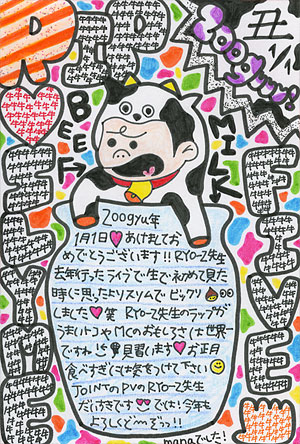 RIP
丑
1/1
2009gyu
BEEF
MILK
FIVE
2009gyu年
1月1日♥あけましてお
めでとうございます!!RYO-Z先生
去年行ったライブで生で初めて見た
時に思ったよりスリムでビックリ
しました♥笑 RYO-Z先生のラップが
うまいトコやMCのおもしろさは世界一
ですね 見習います♥お正月
食べすぎには気をつけて下さい
JOINTのPVのRYO-Z先生
だいすきです♥では!今年も
よろしくど〜ぞっ!!
manaでした!